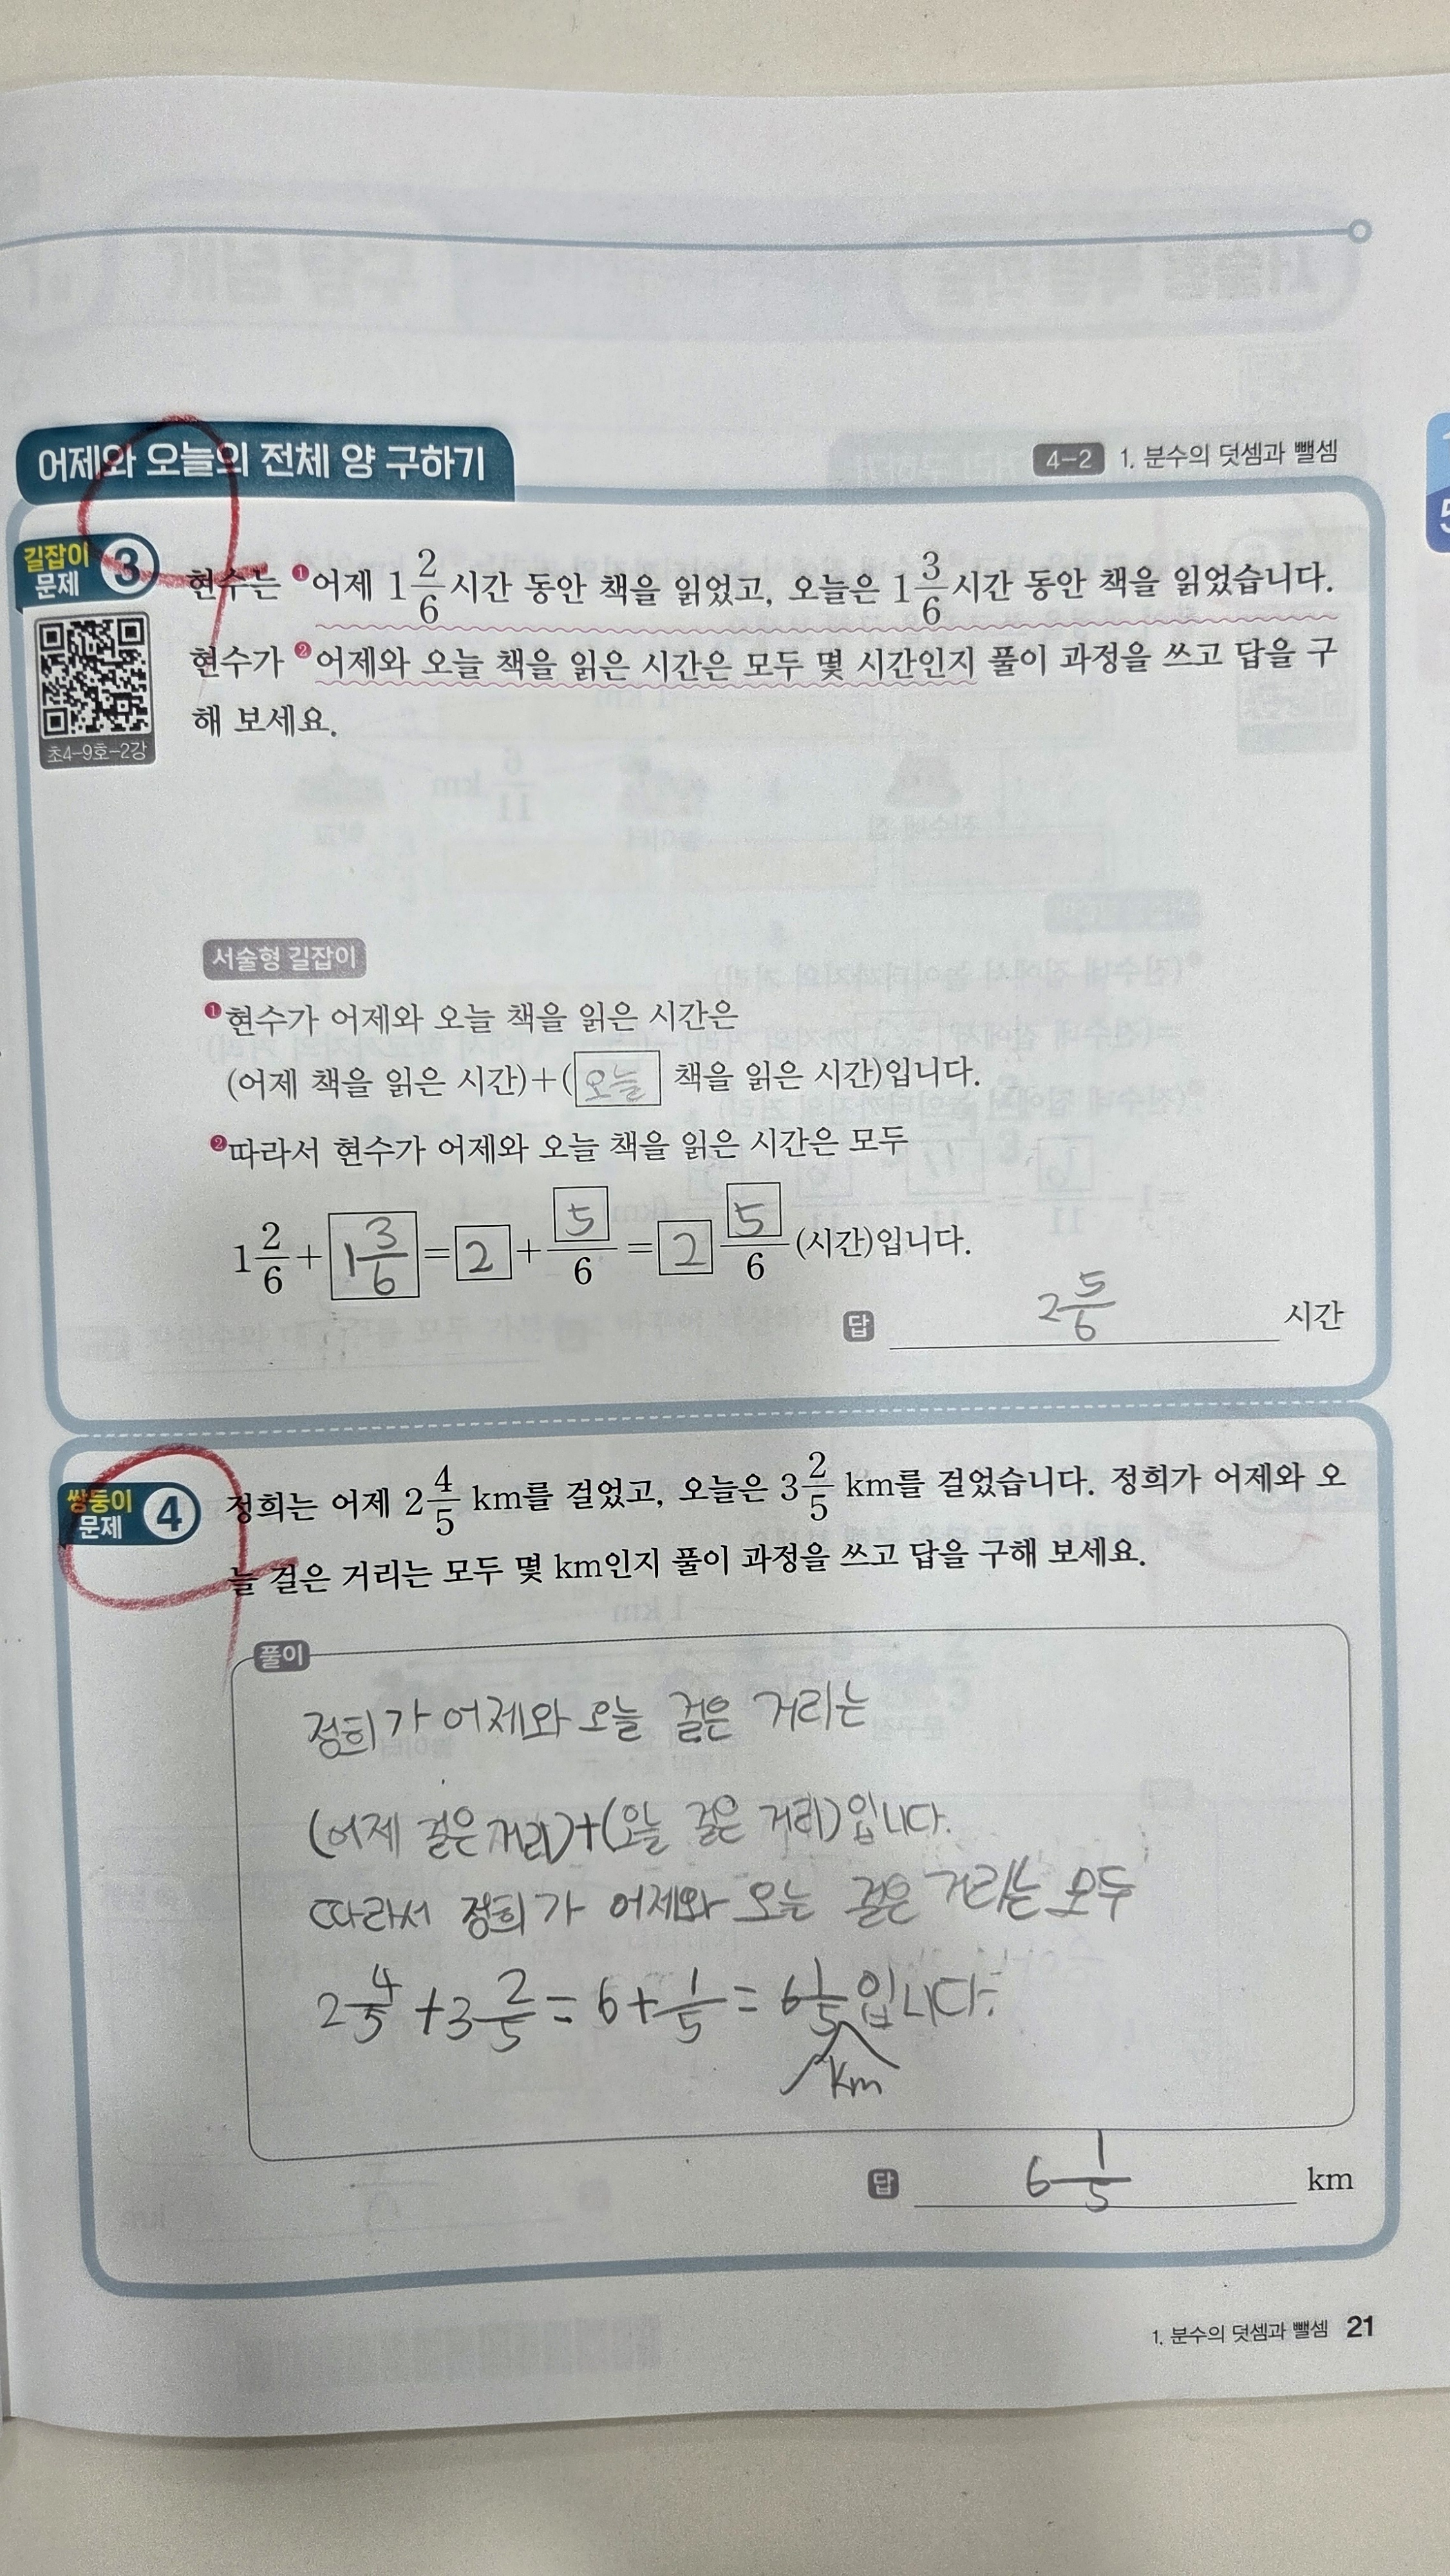 어제와 오늘의 전체 양 구하기
4-2 1. 분수의 덧셈과 뺄셈
길잡이 문제 3
현수는 ❶어제 1 2/6 시간 동안 책을 읽었고, 오늘은 1 3/6 시간 동안 책을 읽었습니다.
현수가 ❷어제와 오늘 책을 읽은 시간은 모두 몇 시간인지 풀이 과정을 쓰고 답을 구
해 보세요.
초4-9호-2강
서술형 길잡이
❶현수가 어제와 오늘 책을 읽은 시간은
(어제 책을 읽은 시간)+(오늘 책을 읽은 시간)입니다.
❷따라서 현수가 어제와 오늘 책을 읽은 시간은 모두
1 2/6 + 1 3/6 = 2 + 5/6 = 2 5/6 (시간)입니다.
답 2 5/6 시간
쌍둥이 문제 4
정희는 어제 2 4/5 km를 걸었고, 오늘은 3 2/5 km를 걸었습니다. 정희가 어제와 오
늘 걸은 거리는 모두 몇 km인지 풀이 과정을 쓰고 답을 구해 보세요.
풀이
정희가 어제와 오늘 걸은 거리는
(어제 걸은 거리)+(오늘 걸은 거리)입니다.
따라서 정희가 어제와 오늘 걸은 거리는 모두
2 4/5 + 3 2/5 = 6 + 1/5 = 6 1/5 입니다.
km
답 6 1/5 km
1. 분수의 덧셈과 뺄셈 21